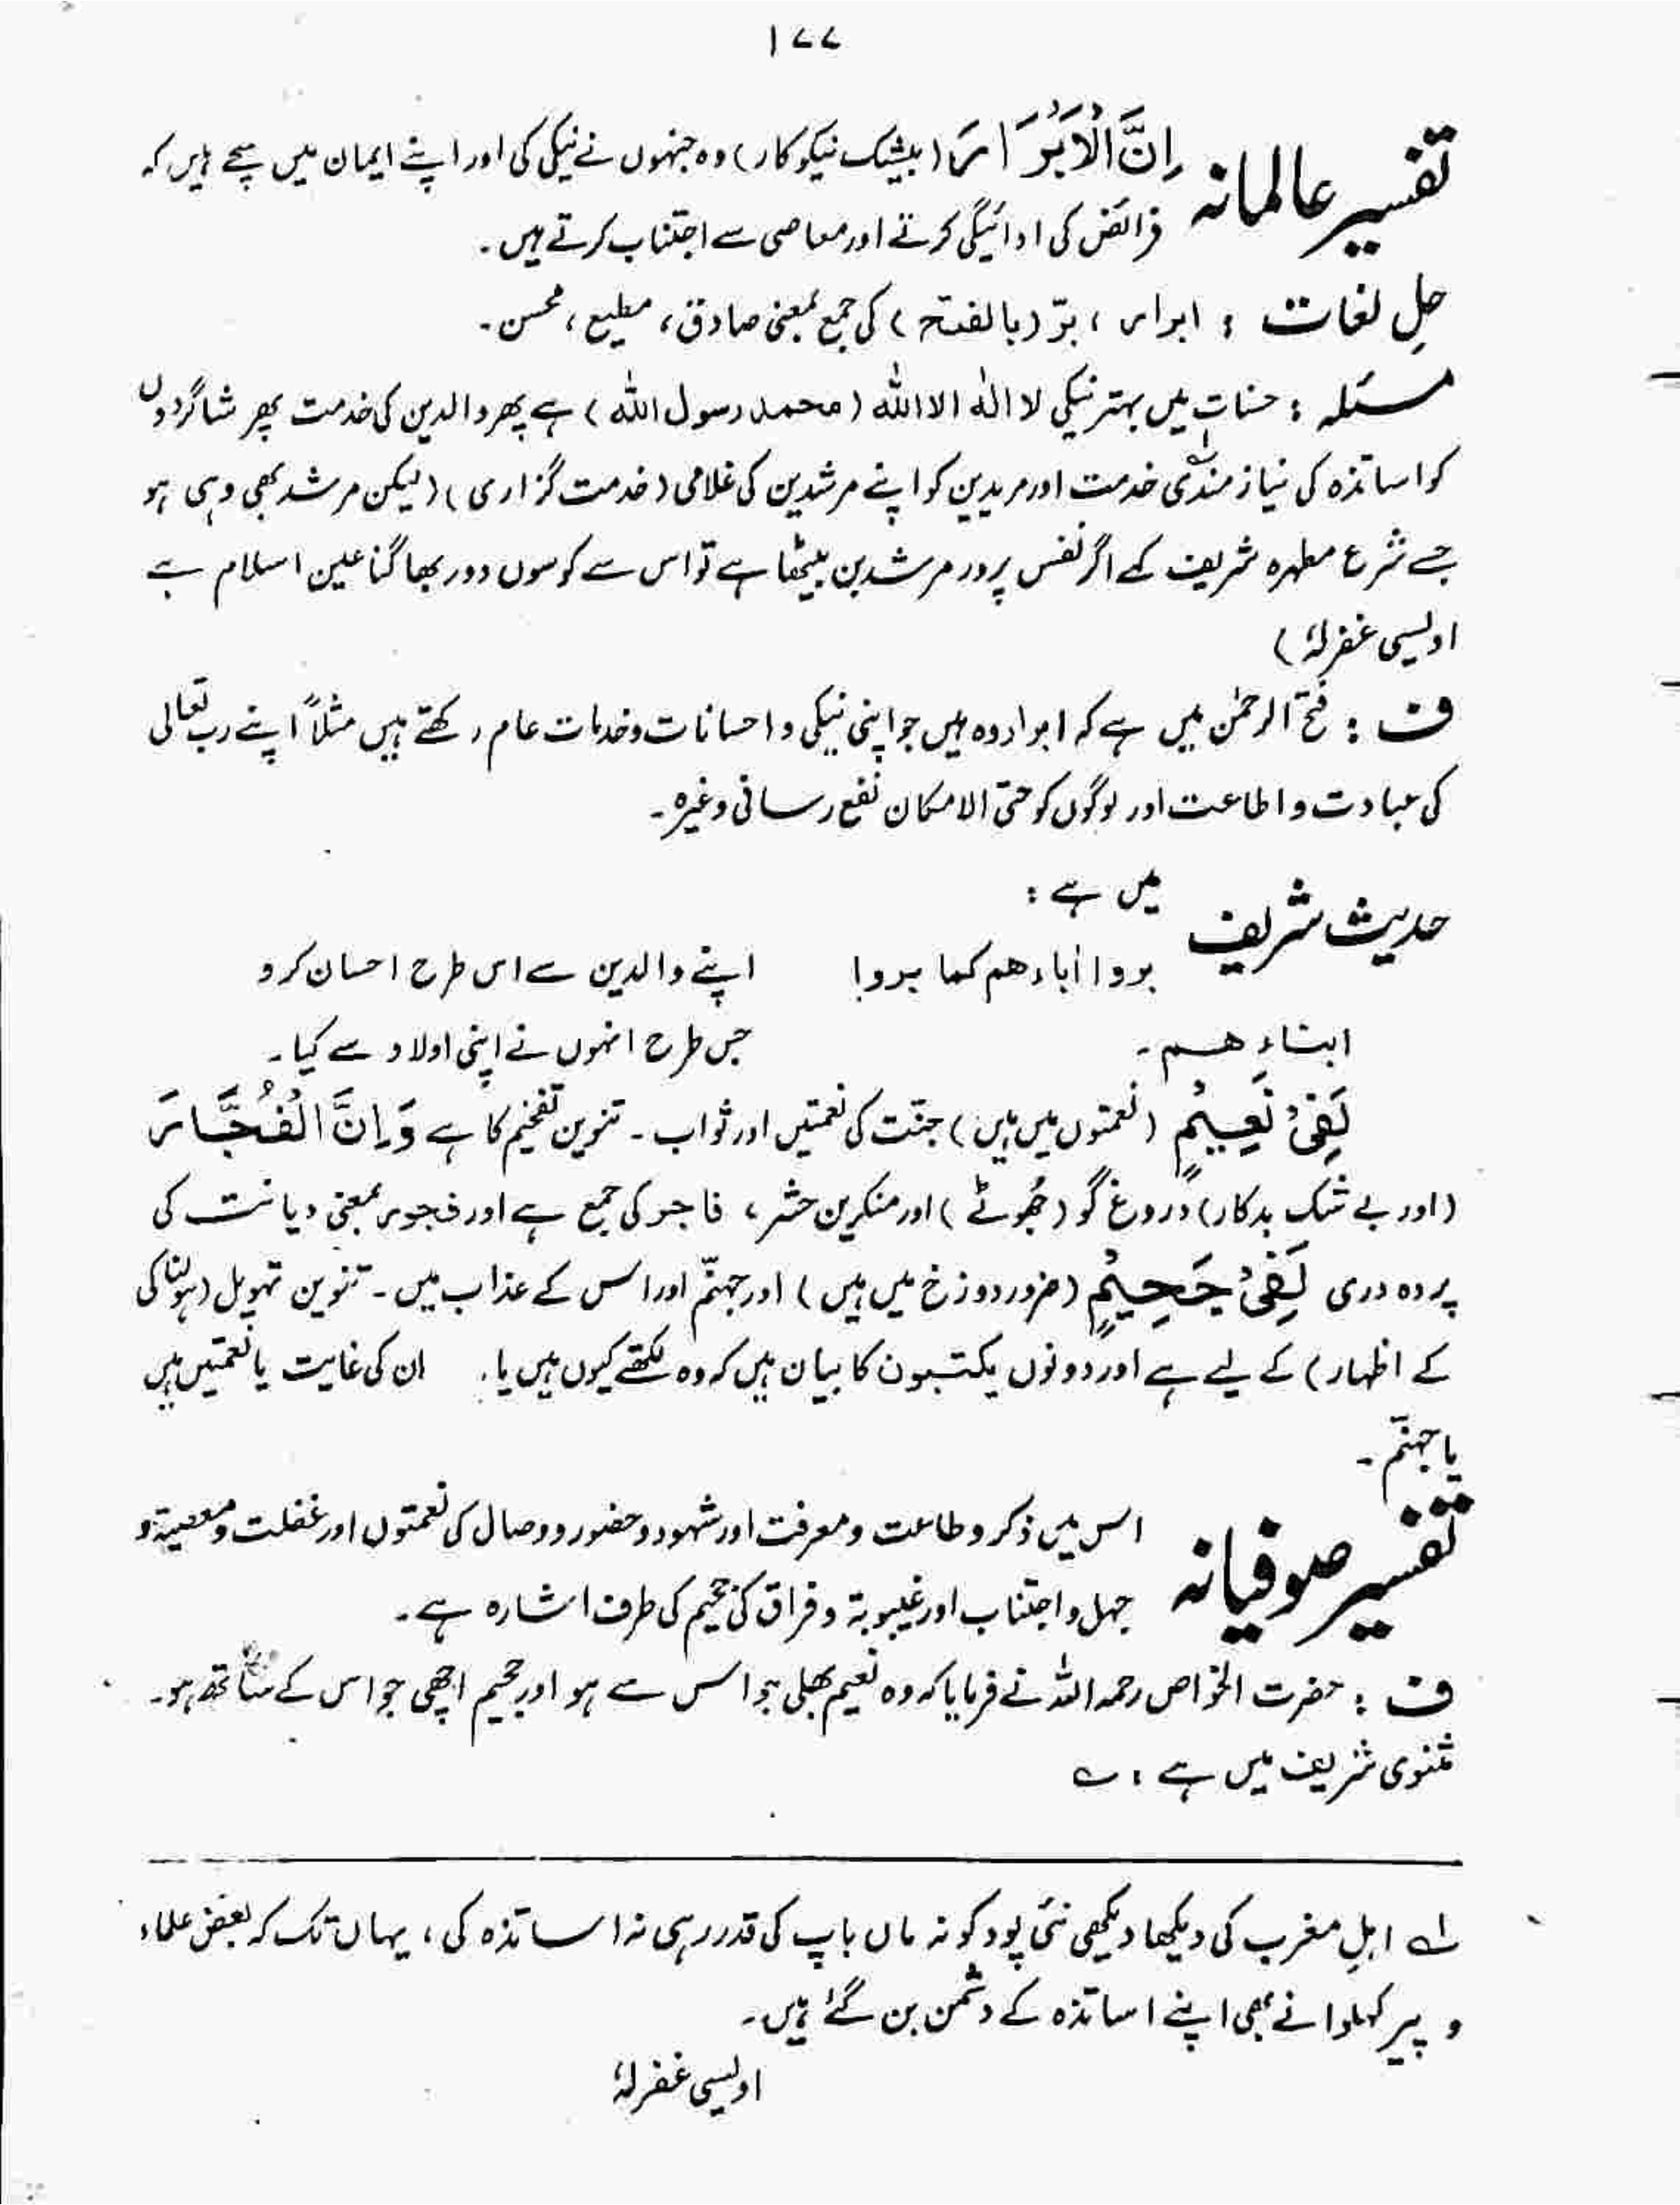 ۱۷۷
تفسیر عالمانہ اِنَّ الْاَبْرَارَ (بیشک نیکوکار) وہ جنہوں نے نیکی کی اور اپنے ایمان میں سچے ہیں کہ
فرائض کی ادائیگی کرتے اور معاصی سے اجتناب کرتے ہیں۔
حلِ لغات : ابرار ، برّ (بالفتح) کی جمع بمعنی صادق، مطیع، محسن۔
مسئلہ : حسنات میں بہتر نیکی لا الٰہ الا اللہ (محمد رسول اللہ) ہے پھر والدین کی خدمت پھر شاگردوں
کو اساتذہ کی نیاز مندی۱ خدمت اور مریدین کو اپنے مرشدین کی غلامی (خدمت گزاری) (لیکن مرشد بھی وہی ہو
جسے شرع مطہرہ شریف کہے اگر نفس پرور مرشد بن بیٹھا ہے تو اس سے کوسوں دور بھاگنا عین اسلام ہے
اویسی غفرلہٗ)
ف : فتح الرحمٰن میں ہے کہ ابرار وہ ہیں جو اپنی نیکی و احسانات و خدمات عام رکھتے ہیں مثلاً اپنے رب تعالٰی
کی عبادت و اطاعت اور لوگوں کو حتی الامکان نفع رسانی وغیرہ۔
حدیث شریف میں ہے :
بروا اٰباءھم کما بروا اپنے والدین سے اس طرح احسان کرو
ابناءِھم۔ جس طرح انہوں نے اپنی اولاد سے کیا۔
لَفِیْ نَعِیْمٍ (نعمتوں میں ہیں) جنّت کی نعمتیں اور ثواب۔ تنوین تفخیم کا ہے وَاِنَّ الْفُجَّارَ
(اور بے شک بدکار) دروغ گو (جُھوٹے) اور منکرین حشر، فاجر کی جمع ہے اور فجور بمعنی دیانت کی
پردہ دری لَفِیْ جَحِیْمٍ (ضرور دوزخ میں ہیں) اور جہنّم اور اس کے عذاب میں۔ تنوین تہویل (ہولناکی
کے اظہار) کے لیے ہے اور دونوں یکتبون کا بیان ہیں کہ وہ لکھتے کیوں ہیں یا۔ ان کی غایت یا نعمتیں ہیں
یا جہنّم۔
تفسیر صوفیانہ اس میں ذکر و طاعت و معرفت اور شہود و حضور و وصال کی نعمتوں اور غفلت و معصیۃ و
جہل و اجتناب اور غیبوبۃ و فراق کی جحیم کی طرف اشارہ ہے۔
ف : حضرت الخواص رحمہ اللہ نے فرمایا کہ وہ نعیم بھلی جو اس سے ہو اور جحیم اچھی جو اس کے ساتھ ہو۔
مثنوی شریف میں ہے : ؎
۱؎ اہلِ مغرب کی دیکھا دیکھی نئی پود کو نہ ماں باپ کی قدر رہی نہ اساتذہ کی، یہاں تک کہ بعض علماء
و پیر کہلوانے بھی اپنے اساتذہ کے دشمن بن گئے ہیں۔
اویسی غفرلہٗ